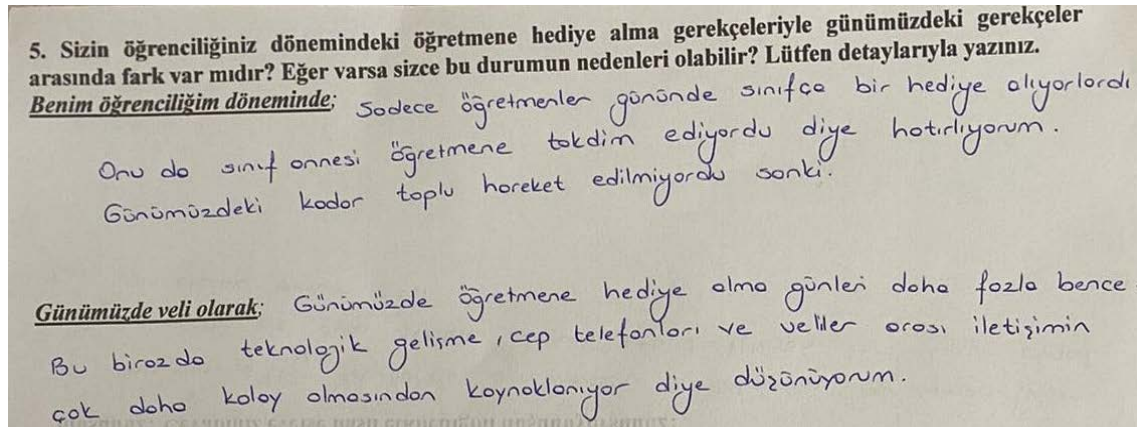 5. Sizin öğrenciliğiniz dönemindeki öğretmene hediye alma gerekçeleriyle günümüzdeki gerekçeler
arasında fark var mıdır? Eğer varsa sizce bu durumun nedenleri olabilir? Lütfen detaylarıyla yazınız.
Benim öğrenciliğim döneminde; Sadece öğretmenler gününde sınıfça bir hediye alıyorlardı
Onu da sınıf annesi öğretmene takdim ediyordu diye hatırlıyorum.
Günümüzdeki kadar toplu hareket edilmiyordu sanki.
Günümüzde veli olarak; Günümüzde öğretmene hediye alma günleri daha fazla bence
Bu biraz da teknolojik gelişme, cep telefonları ve veliler arası iletişimin
çok daha kolay olmasından kaynaklanıyor diye düşünüyorum.